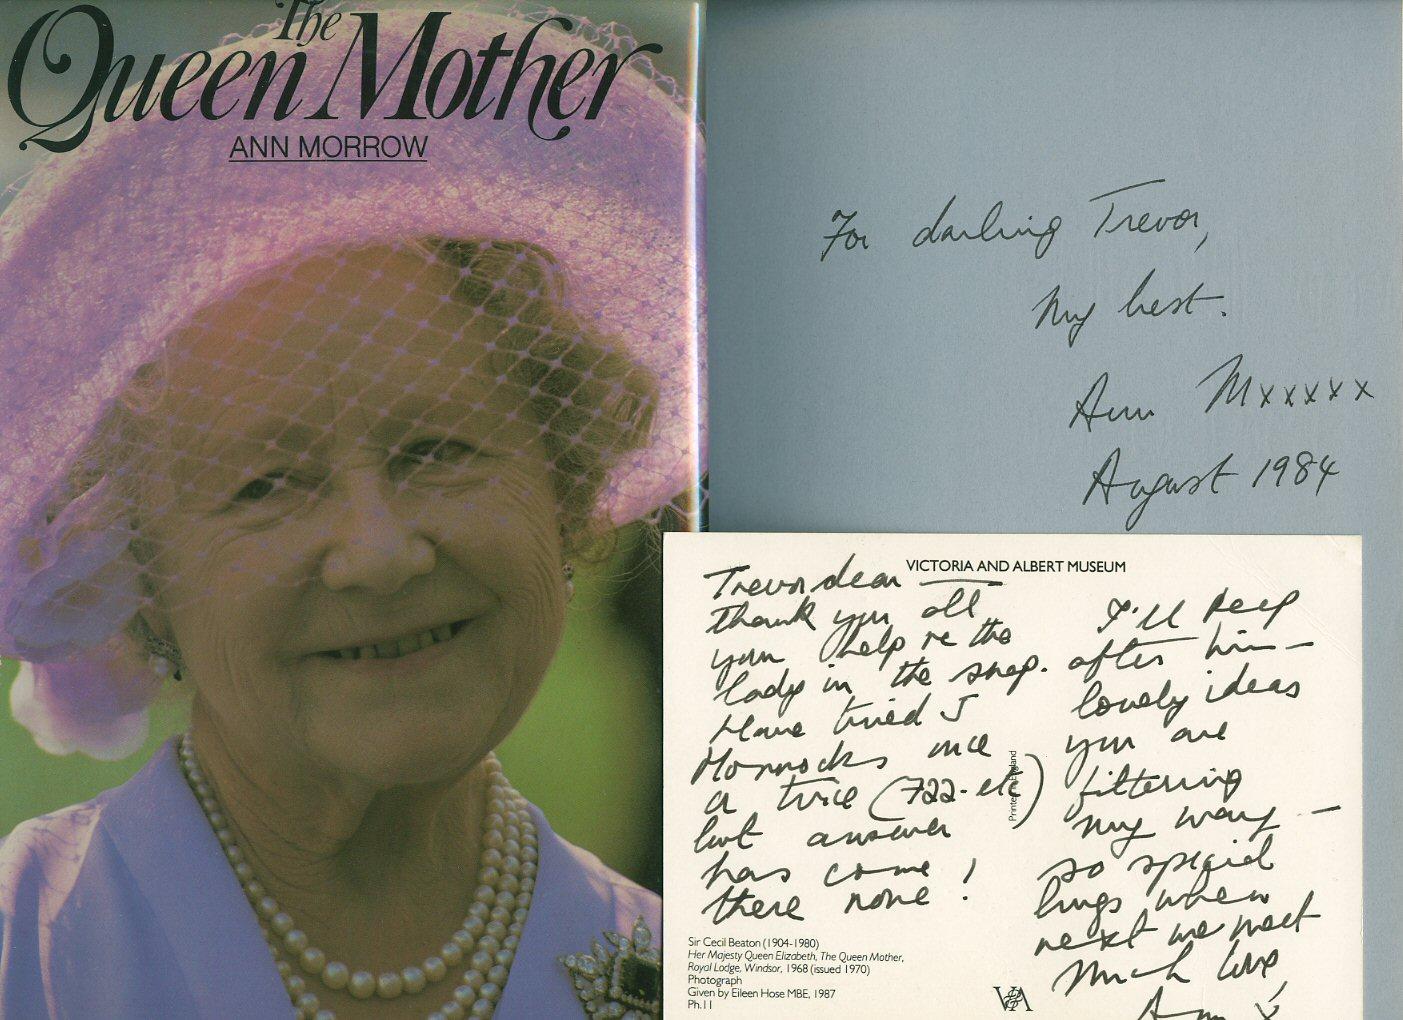 The
Queen Mother
ANN MORROW
For darling Trevor,
My best.
Ann Mxxxxx
August 1984
VICTORIA AND ALBERT MUSEUM
Trevor dear
thank you all
your help re the
lady in the shop.
Have tried J
Horrocks once
or twice (722-etc)
but answer
has come
there none!
I'll keep
after him —
lovely ideas
you are
filtering
my way —
so special
hugs when
next we meet
Much love,
Ann x
Printed in England
Sir Cecil Beaton (1904-1980)
Her Majesty Queen Elizabeth, The Queen Mother,
Royal Lodge, Windsor, 1968 (issued 1970)
Photograph
Given by Eileen Hose MBE, 1987
Ph.11
V&A